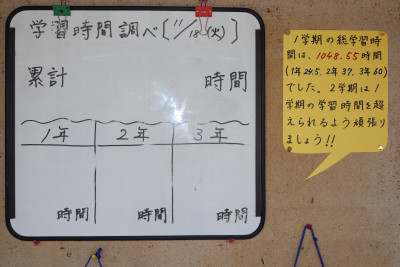 学習時間調べ〔11/18(火)〕
累計 時間
1年 2年 3年
時間 時間 時間
1学期の総学習時
間は、1048.55時間
(1年24.5、2年37、3年60)
でした。2学期は1
学期の学習時間を超
えられるよう頑張り
ましょう!!